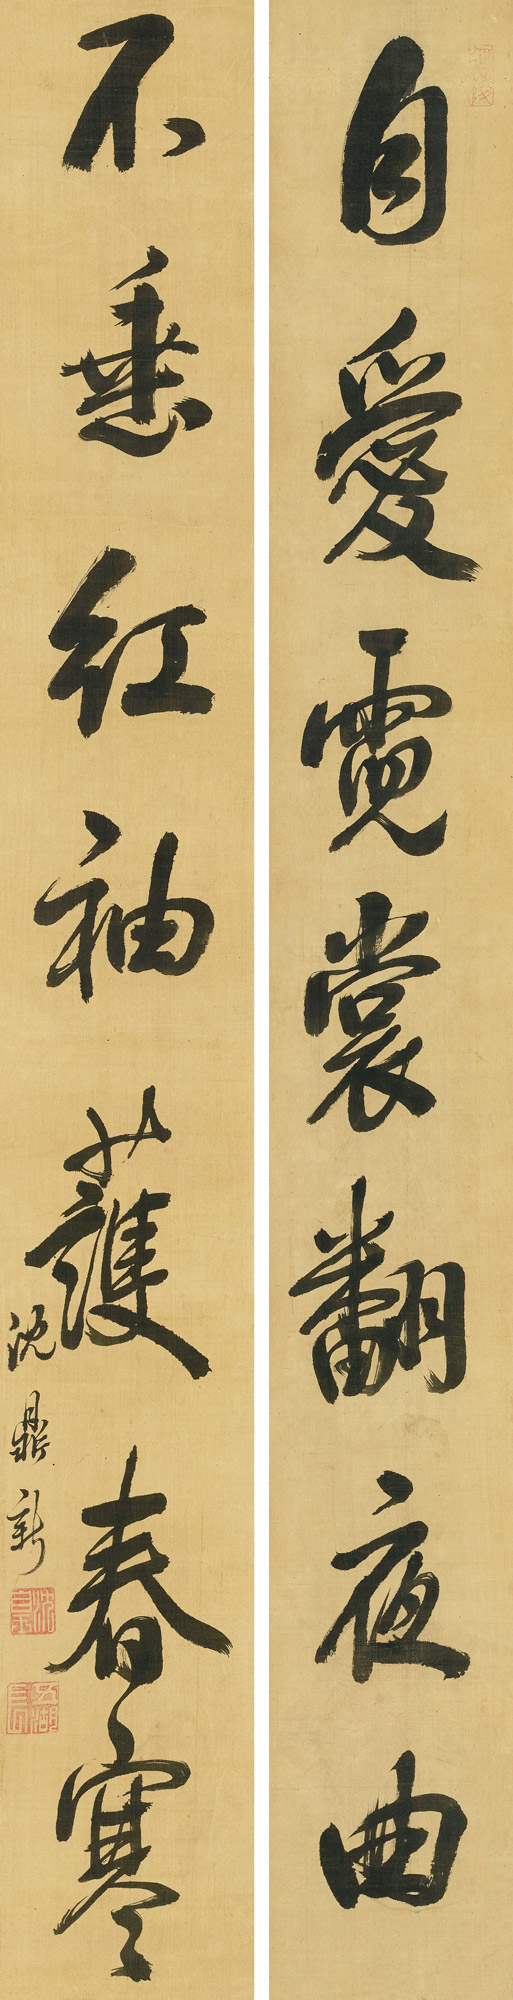 自愛霓裳翻夜曲
不垂紅袖護春寒
沈鼎新